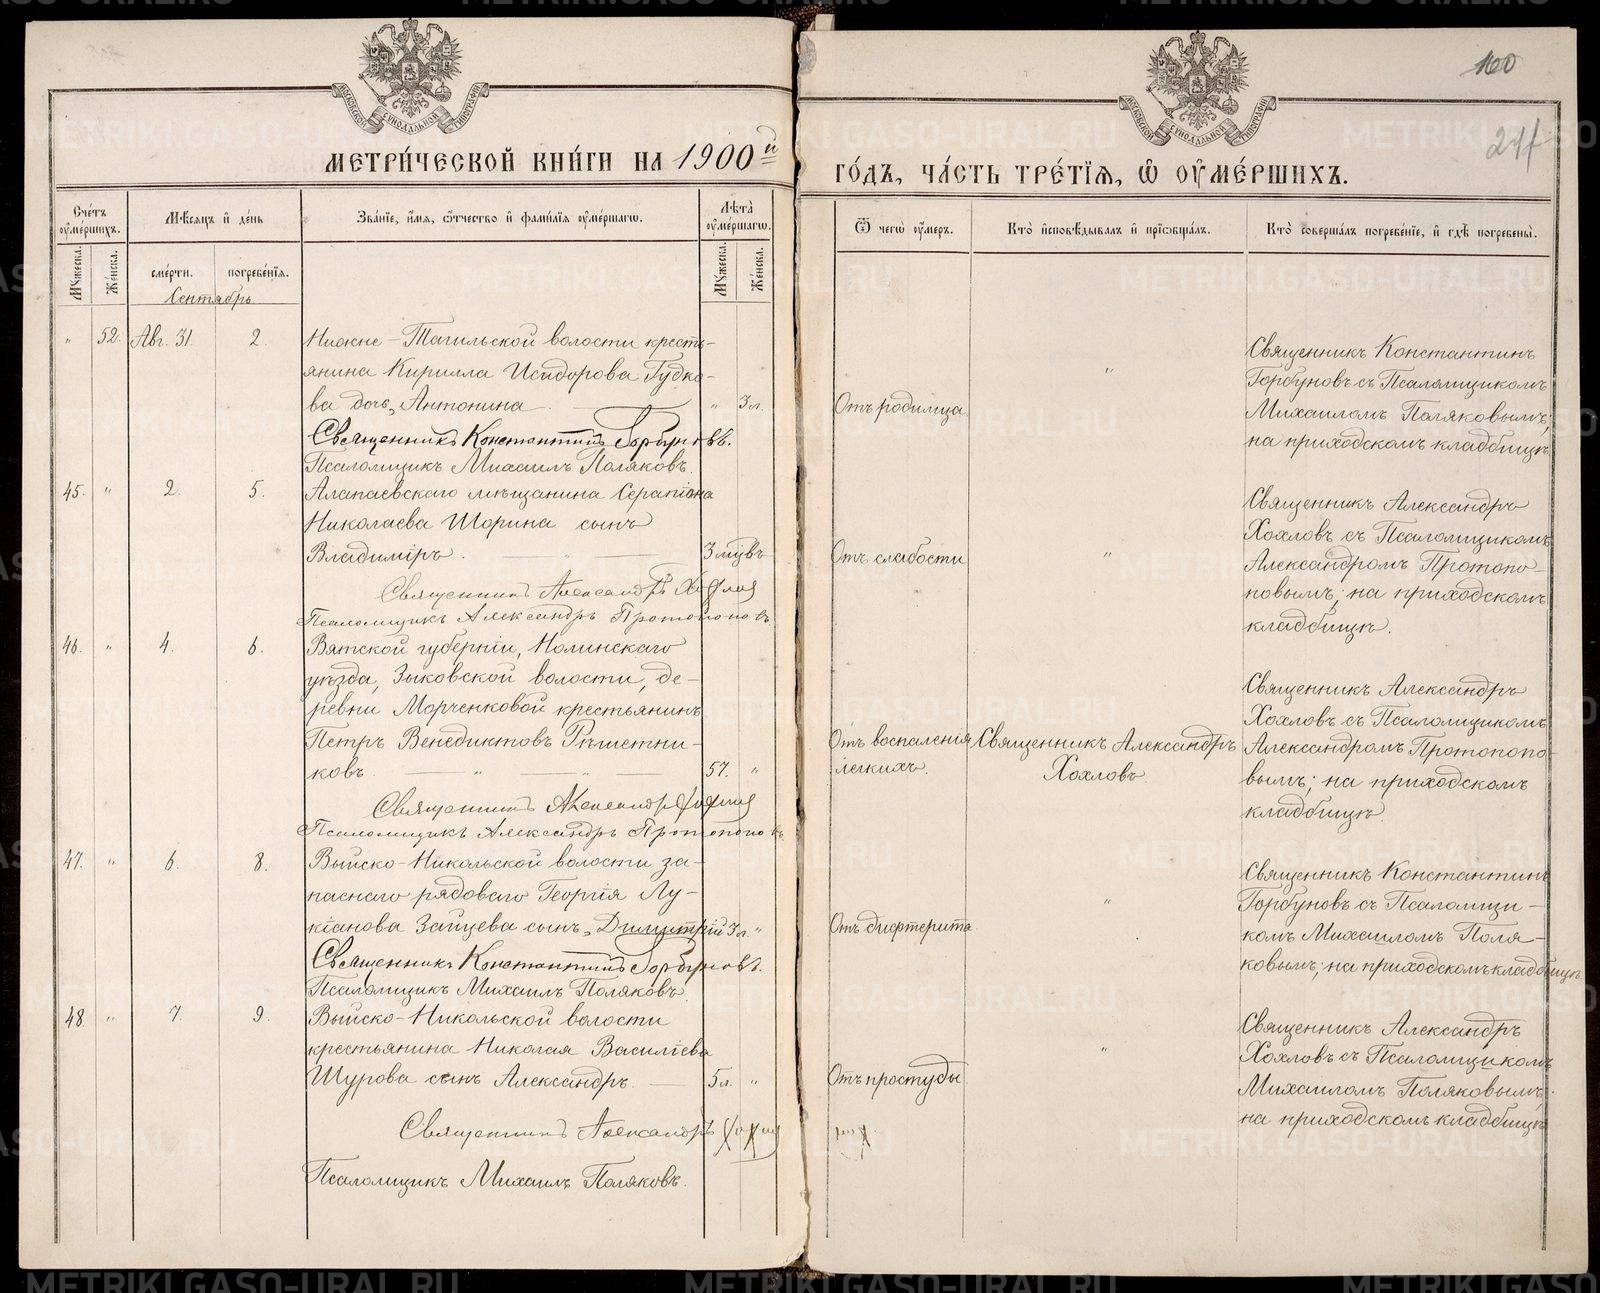 160
217
МОСКОВСКОЙ СѴНОДАЛЬНОЙ ТИПОГРАФІИ
МОСКОВСКОЙ СѴНОДАЛЬНОЙ ТИПОГРАФІИ
МЕТРИ́ЧЕСКОЙ КНИ́ГИ НА 1900й
ГО́ДЪ, ЧА́СТЬ ТРЕ́ТІѦ, Ѿ ОУ҆МЕ́РШИХЪ.
Сче́тъ оу҆ме́ршихъ.
Мѣ́сяцъ и҆ де́нь
Зва́нїе, и҆́мя, ѻ҆́тчество и҆ фами́лїя оу҆ме́ршагѡ.
Лѣ́та оу҆ме́ршагѡ.
Ѿ чегѡ̀ оу҆́меръ.
Кто̀ и҆сповѣ́дывалъ и҆ прїѡбща́лъ.
Кто̀ соверша́лъ погребе́нїе, и҆ гдѣ̀ погребены̀.
Мꙋ́жеска.
Же́нска.
сме́рти.
погребе́нїя.
Мꙋ́жеска.
Же́нска.
Сентябрь
" 52. Авг. 31. 2. Нижне-Тагильской волости кресть-
янина Кирилла Исидорова Гудко-
ва дочь, Антонина. " 3 л.
Священникъ Константинъ Горбуновъ.
Псаломщикъ Михаилъ Поляковъ.
Отъ родимца.
"
Священникъ Константинъ
Горбуновъ съ Псаломщикомъ
Михаиломъ Поляковымъ;
на приходскомъ кладбищѣ
45. " 2. 5. Алапаевскаго мѣщанина Серапіона
Николаева Шорина сынъ
Владиміръ. " 3 мцвъ
Священникъ Александръ Хохловъ
Псаломщикъ Александръ Протопоповъ
Отъ слабости
"
Священникъ Александръ
Хохловъ съ Псаломщикомъ
Александромъ Протопо-
повымъ; на приходскомъ
кладбищѣ.
46. " 4. 6. Вятской губерніи, Нолинскаго
уѣзда, Зыковской волости, де-
ревни Морченковой крестьянинъ
Петръ Венедиктовъ Рѣшетни-
ковъ " " 57. "
Священникъ Александръ Хохловъ
Псаломщикъ Александръ Протопоповъ
Отъ воспаленія
легкихъ.
Священникъ Александръ
Хохловъ
Священникъ Александръ
Хохловъ съ Псаломщикомъ
Александромъ Протопопо-
вымъ; на приходскомъ
кладбищѣ.
47. " 6. 8. Выйско-Никольской волости за-
паснаго рядоваго Георгія Лу-
кіанова Зайцева сынъ, Димитрій 3 л. "
Священникъ Константинъ Горбуновъ.
Псаломщикъ Михаилъ Поляковъ.
Отъ дифтерита
"
Священникъ Константинъ
Горбуновъ съ Псаломщи-
комъ Михаиломъ Поля-
ковымъ; на приходскомъ кладбищѣ
48. " 7. 9. Выйско-Никольской волости
крестьянина Николая Василіева
Шурова сынъ Александръ. 5 л. "
Священникъ Александръ Хохловъ
Псаломщикъ Михаилъ Поляковъ.
Отъ простуды.
"
Священникъ Александръ
Хохловъ съ Псаломщикомъ
Михаиломъ Поляковымъ;
на приходскомъ кладбищѣ
METRIKI.GASO-URAL.RU